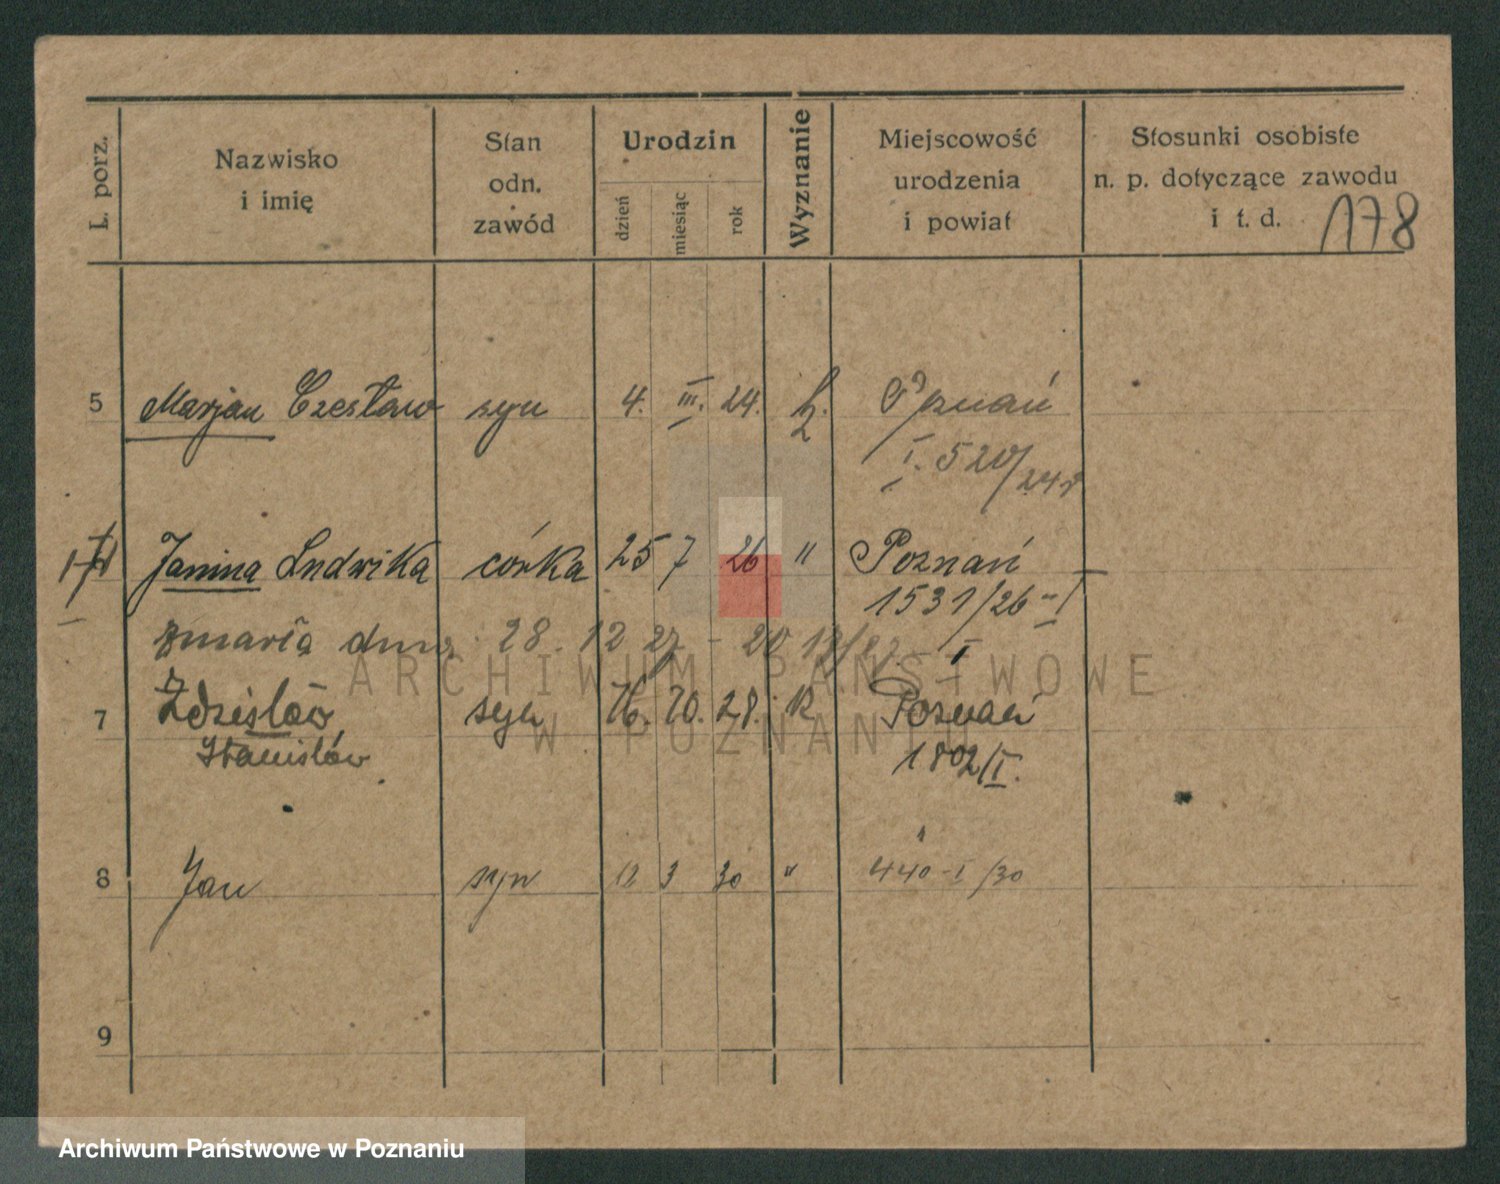 L. porz.
Nazwisko
i imię
Stan
odn.
zawód
Urodzin
dzień
miesiąc
rok
Wyznanie
Miejscowość
urodzenia
i powiat
Stosunki osobiste
n. p. dotyczące zawodu
i t. d.
178
5 Marjan Czesław syn 4. III. 24. Poznań
I. 520/24r
Janina Ludwika córka 25 7 26 " Poznań
1531/26-I
zmarła dnia 28. 12 27 - I
7 Zdzisław syn 16. 10. 28. Poznań
Stanisław 1802/I.
8 Jan syn 12 3 30 " "
440-I/30
9
ARCHIWUM PAŃSTWOWE
W POZNANIU
Archiwum Państwowe w Poznaniu